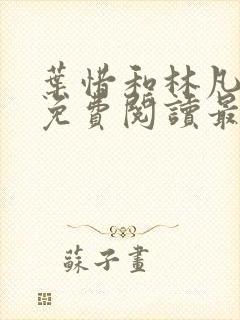 葉惜和林凡
免費閱讀最
蘇子畫